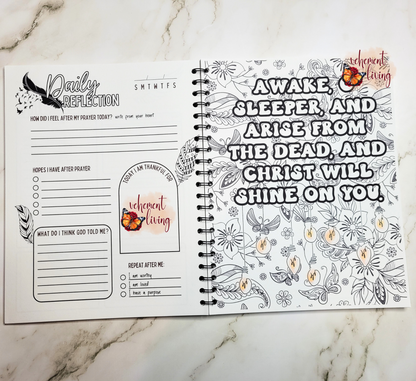 Daily
REFLECTION
S M T W T F S
HOW DID I FEEL AFTER MY PRAYER TODAY? write from your heart
HOPES I HAVE AFTER PRAYER
TODAY I AM THANKFUL FOR
vehement
living
WHAT DO I THINK GOD TOLD ME?
REPEAT AFTER ME:
I am worthy
I am loved
I have a purpose
vehement
living
AWAKE, O
SLEEPER, AND
ARISE FROM
THE DEAD, AND
CHRIST WILL
SHINE ON YOU.